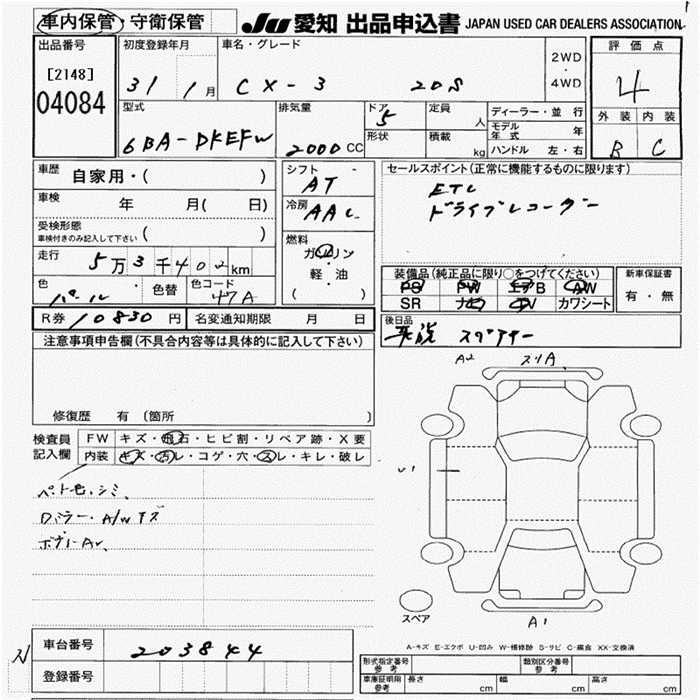 車内保管・守衛保管
JU 愛知 出品申込書 JAPAN USED CAR DEALERS ASSOCIATION
出品番号
[2148]
04084
初度登録年月
31 1月
車名・グレード
CX-3 20S
2WD
・
4WD
評価点
4
外装 内装
B C
型式
6BA-DKEFW
排気量
2000 CC
ドア
5
形状
定員
人
積載
kg
ディーラー・並行
モデル年式 年
ハンドル 左・右
車歴
自家用・( )
車検
年 月( 日)
受検形態
車検付きのみ記入して下さい ( )
走行
5万3千402km
色
パール
色替
色コード
47A
シフト
AT
冷房
AAC
燃料
ガソリン
軽・油
( )
セールスポイント(正常に機能するものに限ります)
ETC
ドライブレコーダー
装備品(純正品に限り○をつけてください)
PS PW エアB AW
SR ナビ TV カワシート
新車保証書
有・無
R券 10830円 名変通知期限 月 日
後日品
スペアキー
注意事項申告欄(不具合内容等は具体的に記入して下さい)
修復歴 有 〔箇所 〕
検査員
記入欄
FW キズ・飛石・ヒビ割・リペア跡・X要
内装 キズ・汚レ・コゲ・穴・スレ・キレ・破レ
ペット毛、シミ、
A/Wキズ
A2 スリA
U1
スペア
A1
A-キズ E-エクボ U-凹み W-補修跡 S-サビ C-腐食 XX-交換済
車台番号
203844
登録番号
形式指定番号
参考
類別区分番号
参考
車庫証明用
参考
長さ cm 幅 cm 高さ cm